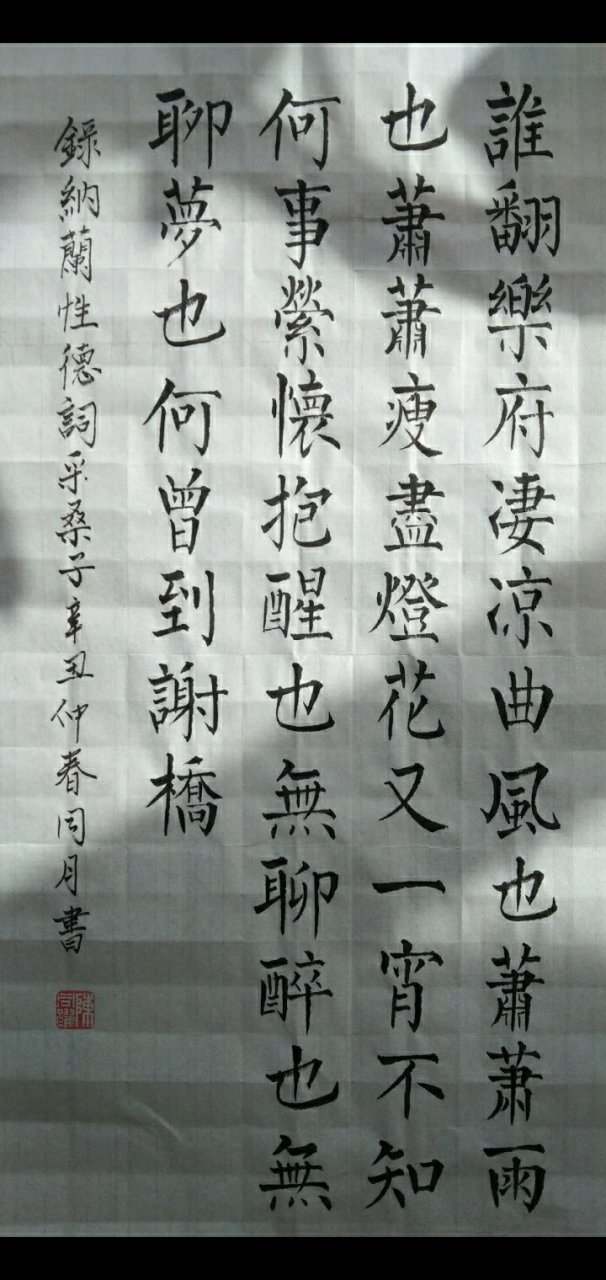 誰翻樂府凄凉曲風也蕭蕭雨
也蕭蕭瘦盡燈花又一宵不知
何事縈懷抱醒也無聊醉也無
聊夢也何曾到謝橋
錄納蘭性德詞采桑子辛丑仲春同月書